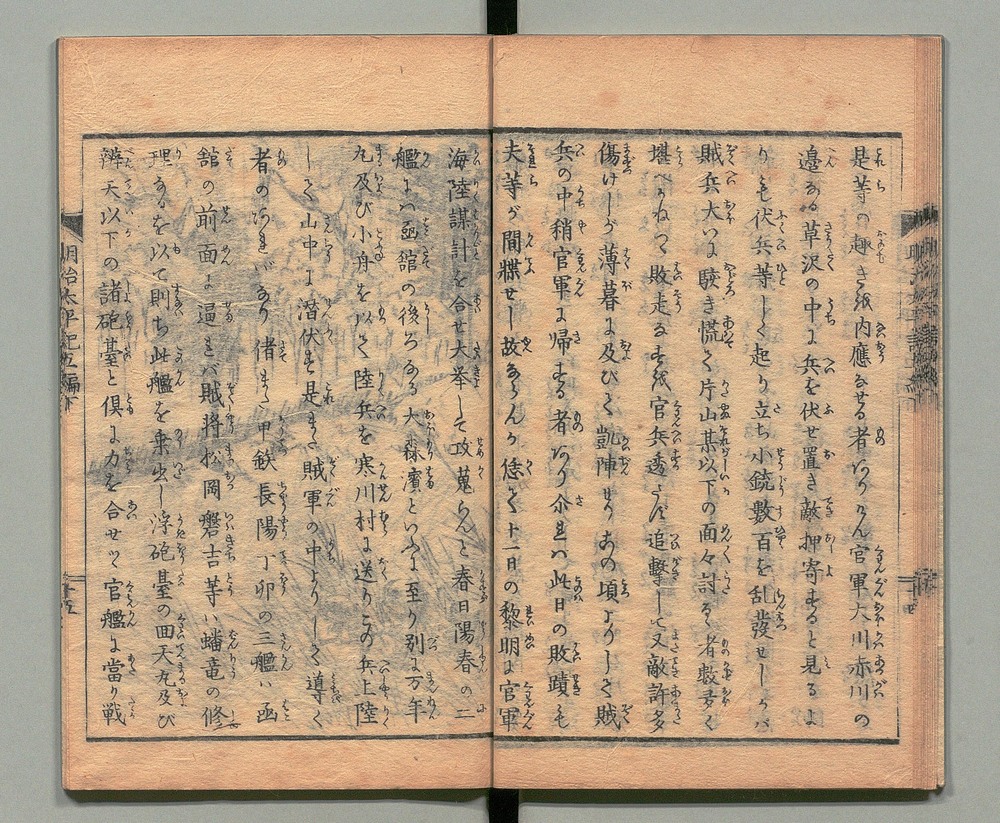 是等の趣き紙内應なせる者ありけん官軍大川赤川の
邉なる草沢の中に兵を伏せ置き敵押寄すると見るよ
りも伏兵等しく起り立ち小銃數百を乱發せしかバ
賊兵大いに駭き慌て片山某以下の面々討るゝ者数多く
堪へかねて敗走なすを官兵透さず追撃して又敵許多
傷けしが薄暮に及びて凱陣せりあの頃よりして賊
兵の中稍官軍に帰する者あり尒れバ此日の敗蹟も
夫等が間牒せし故ならんか恁て十一日の黎明に官軍
海陸謀計を合せ大挙して攻蒐らんと春日陽春の二
艦にハ函舘の後ろなる大森濱といふに至り別に万年
丸及び小舟を以て陸兵を寒川村に送りこの兵上陸
して山中に潜伏す是また賊軍の中よりして導く
者のあれバなり偖また甲鉄長陽丁卯の三艦ハ函
舘の前面に逼きバ賊將松岡磐吉等ハ蟠竜の修
理なるを以て則ち此艦を乗出し浮砲臺の回天丸及び
辨天以下の諸砲臺と倶に力を合せて官艦に當り戦
明治太平記五編下